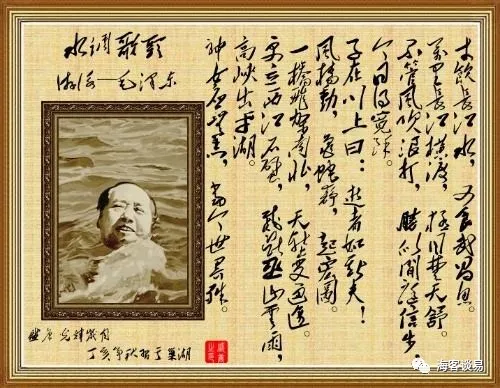 水调歌头
游泳—毛泽东
才饮长江水，又食武昌鱼。
万里长江横渡，极目楚天舒。
不管风吹浪打，胜似闲庭信步，
今日得宽馀。
子在川上曰：逝者如斯夫！
风樯动，龟蛇静，起宏图。
一桥飞架南北，天堑变通途。
更立西江石壁，截断巫山云雨，
高峡出平湖。
神女应无恙，当今世界殊。
岁月
丁亥年秋 于巢湖
海客谈易